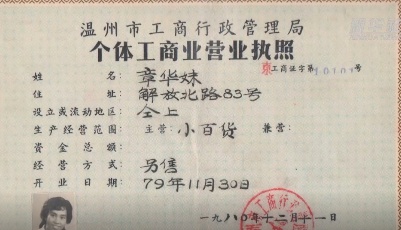 温州市工商行政管理局
个体工商业营业执照
工商证字第10101号
姓名：章华妹
住址：解放北路83号
设立或流动地区：仝上
生产经营范围：主营：小百货 兼营：
资金总额：
经营方式：另售
开业日期：79年11月30日
一九八〇年十二月十一日